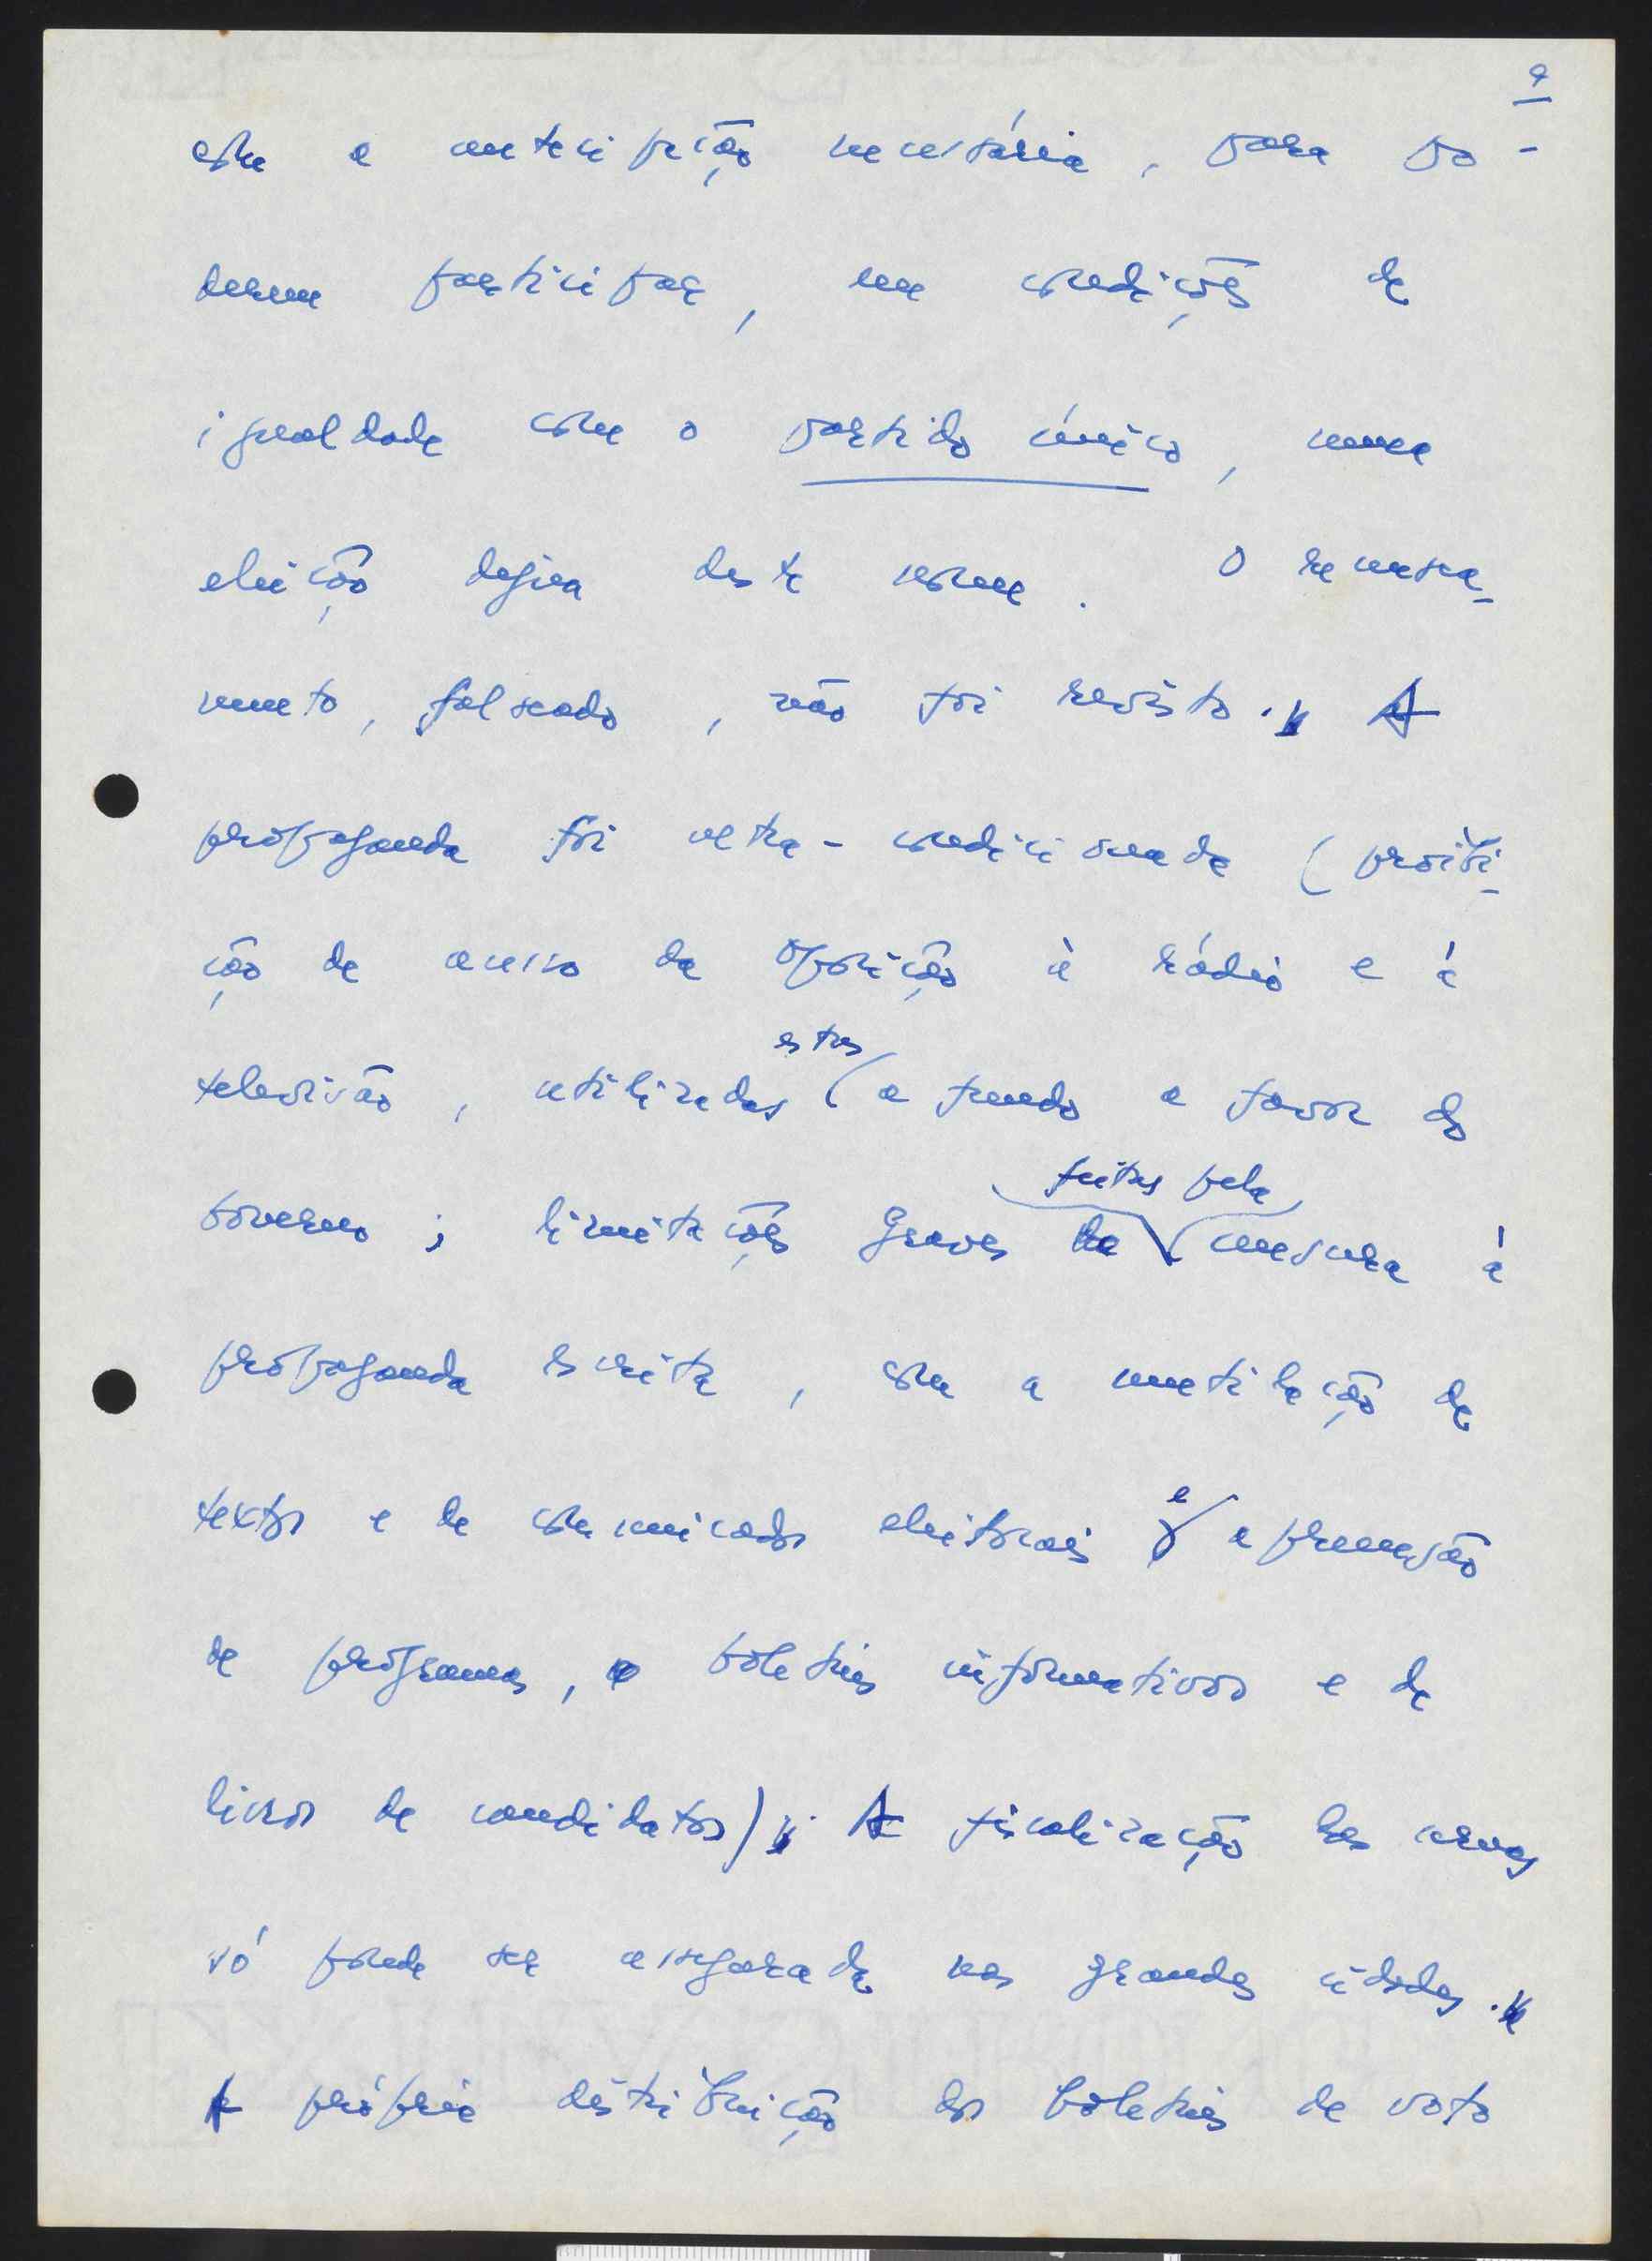 9
com a antecipação necessária, para po-
derem participar, em condições de
igualdade com o partido único, numa
eleição digna deste nome. O recensea-
mento, falseado, não foi revisto. A
propaganda foi ultra-condicionada (proibi-
ção de acesso da oposição à rádio e à
televisão, utilizadas estas a fundo a favor do
Governo; limitações graves feitas pela censura à
propaganda escrita, com a mutilação de
textos e de comunicados eleitorais e apreensão
de programas, boletins informativos e de
livros de candidatos). A fiscalização das urnas
só pode ser assegurada nas grandes cidades.
A própria distribuição dos boletins de voto